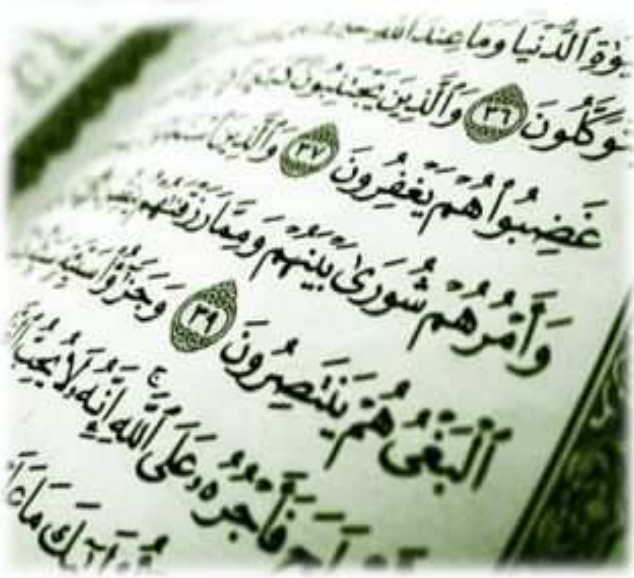 ٱلدُّنْيَا وَمَا عِندَ ٱللَّهِ
وَكَّلُونَ ٣٦ وَٱلَّذِينَ يَجْتَنِبُونَ
غَضِبُوا۟ هُمْ يَغْفِرُونَ ٣٧ وَٱلَّذِينَ
وَأَمْرُهُمْ شُورَىٰ بَيْنَهُمْ وَمِمَّا رَزَقْنَٰهُمْ
ٱلْبَغْىُ هُمْ يَنتَصِرُونَ ٣٩ وَجَزَٰٓؤُا۟ سَيِّئَةٍ
فَأَجْرُهُۥ عَلَى ٱللَّهِ ۚ إِنَّهُۥ لَا يُحِبُّ
مَا